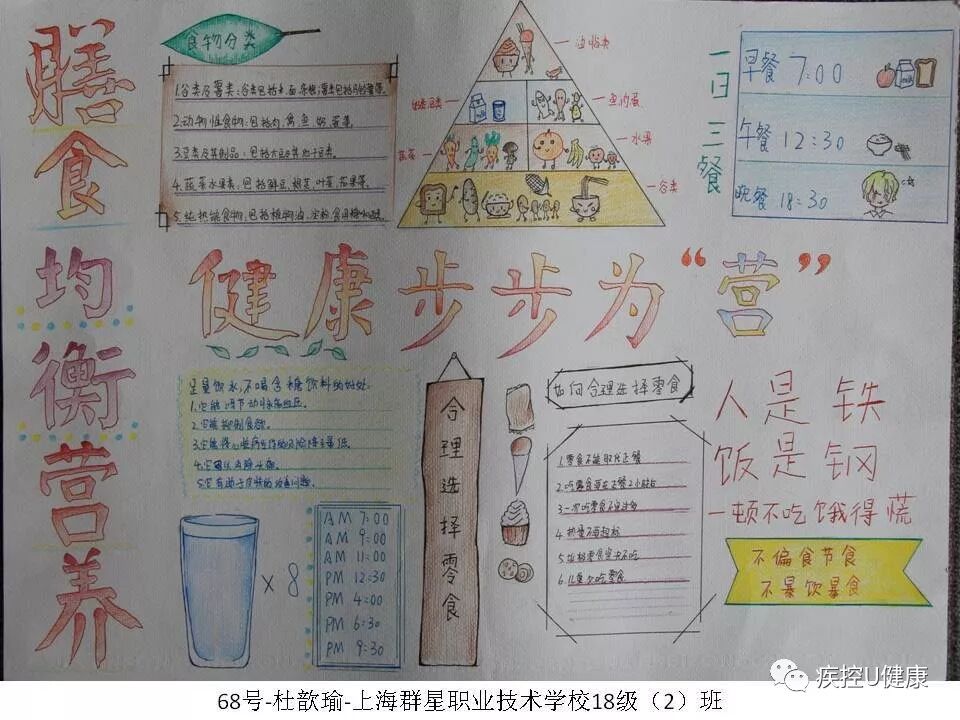 膳食
均衡
营养
食物分类
1.谷类及薯类:谷类包括米、面、杂粮,薯类包括
2.动物性食物:包括肉、禽、鱼、奶、蛋等。
3.豆类及其制品:包括大豆及其他干豆类。
4.蔬菜水果类:包括鲜豆、根茎、叶菜、茄果等。
5.纯热能食物:包括植物油、淀粉、食用糖
油脂类
鱼肉蛋
蔬菜
水果
谷类
一日三餐
早餐 7:00
午餐 12:30
晚餐 18:30
健康步步为“营”
足量饮水,不喝含糖饮料的好处.
1.它能调节
2.它能抑制食欲。
×8
AM 7:00
AM 9:00
AM 11:00
PM 12:30
PM 4:00
PM 6:30
PM 9:30
合理选择零食
如何合理选择零食
1.零食不能取代正餐
2.吃零食要在正餐2小时
3.一次吃零食不宜过多
6.儿童少吃零食
人是铁
饭是钢
一顿不吃饿得慌
不偏食节食
不暴饮暴食
疾控U健康
68号-杜歆瑜-上海群星职业技术学校18级（2）班